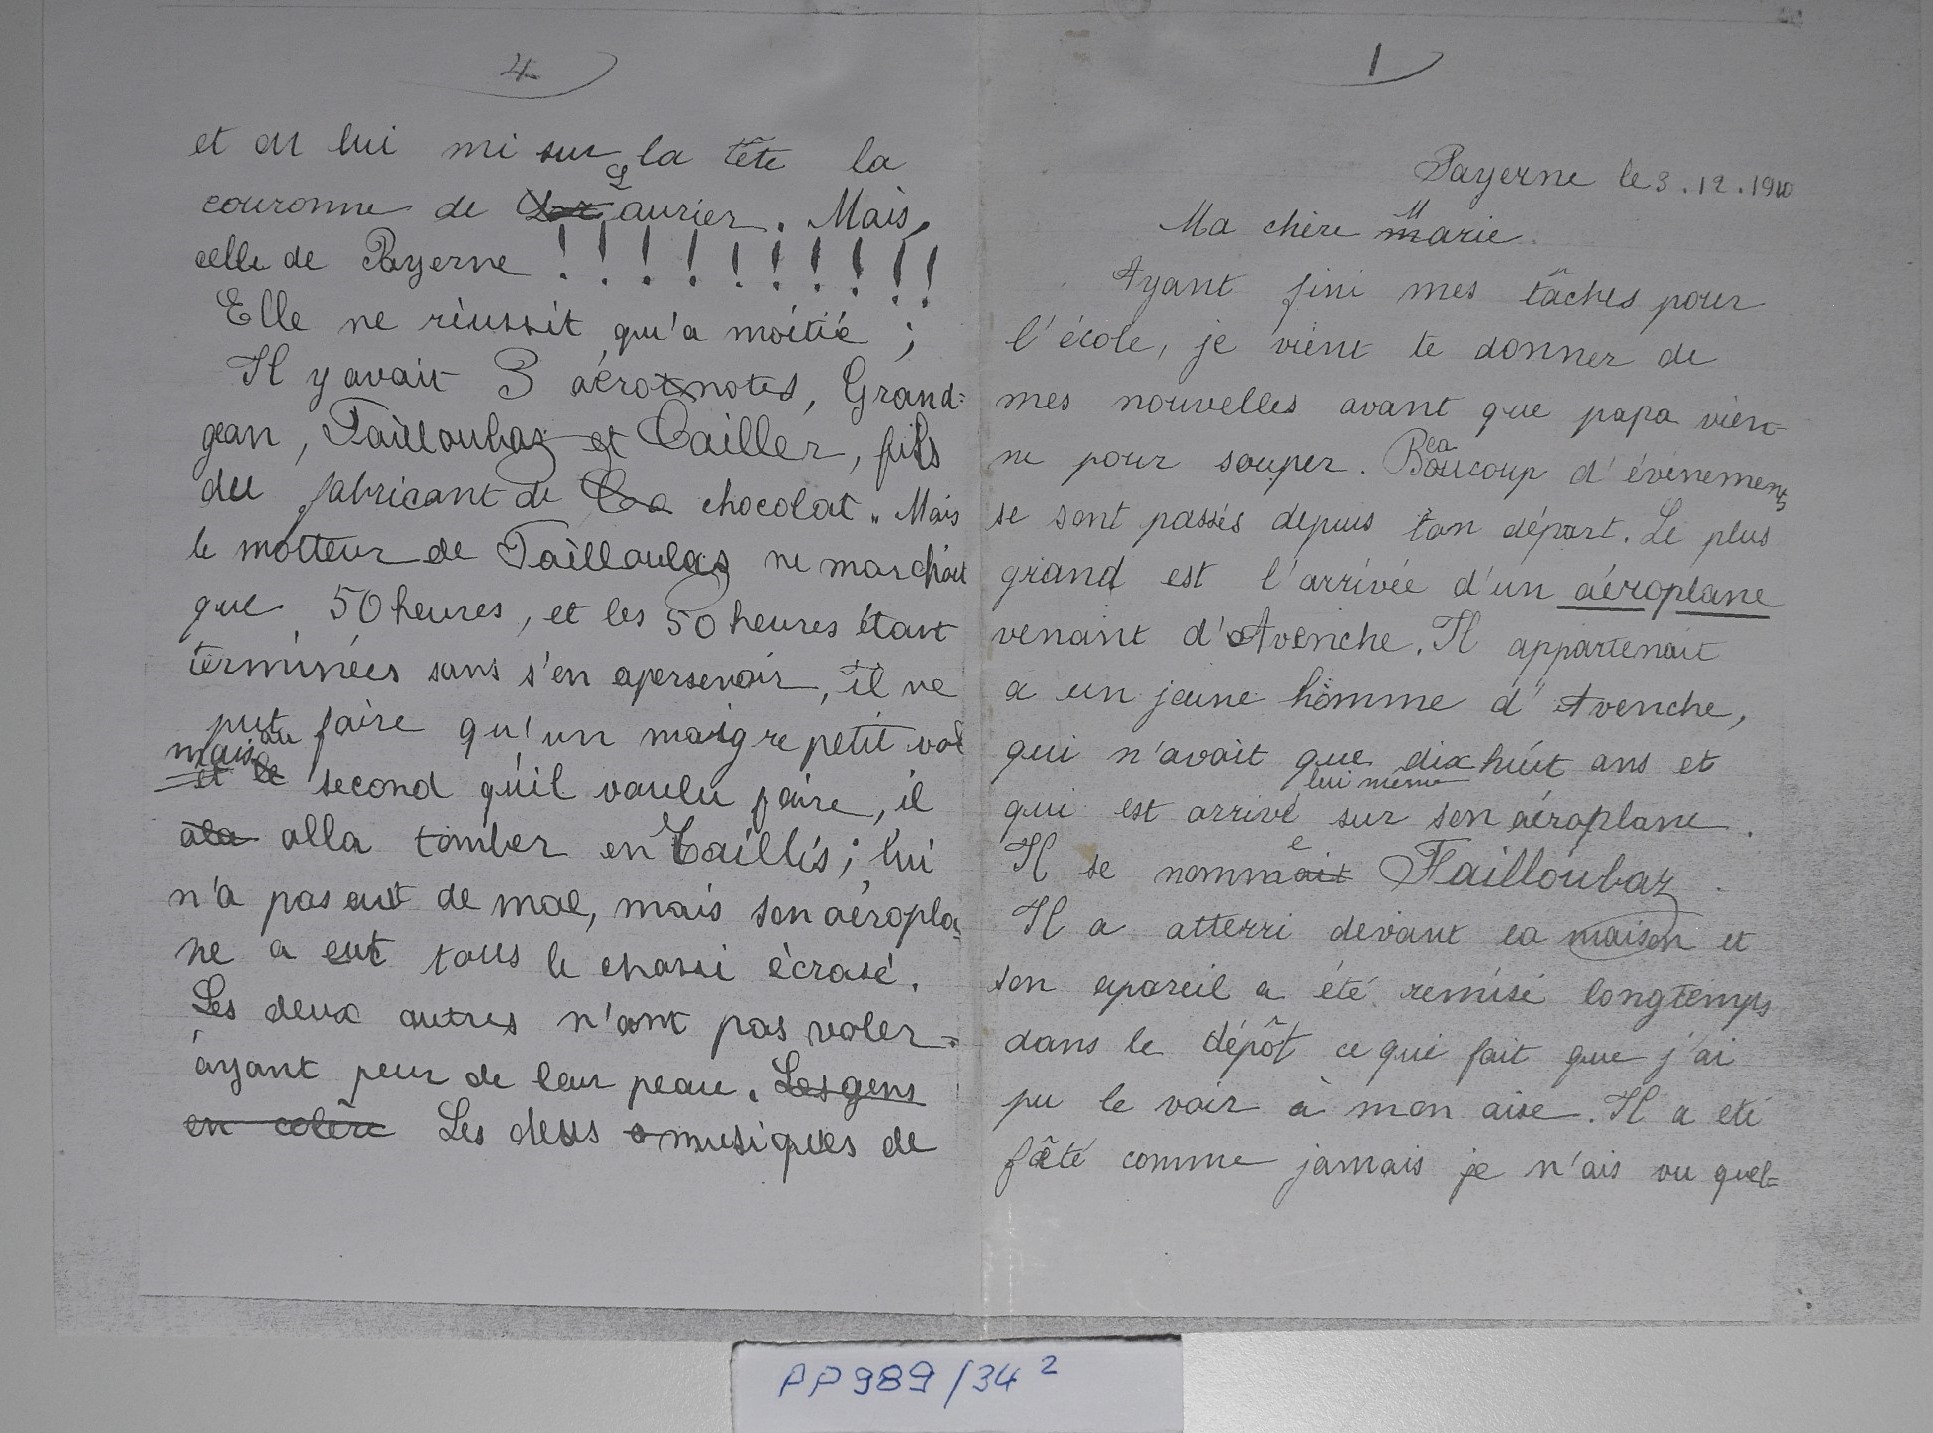 4
et on lui mi sur la tête la
couronne de Laurier. Mais,
celle de Payerne !!!!!!!!!!
Elle ne réussit qu'a moitié ;
Il y avait 3 aéronotes, Grand=
jean, Failloubaz et Cailler, fils
du fabricant de chocolat. Mais
le motteur de Failloubaz ne marchait
que 50 heures, et les 50 heures étant
terminées sans s'en apersevoir, il ne
put faire qu'un maigre petit vol
mais au
et le second qu'il voulu faire, il
ala alla tomber en Taillis ; lui
n'a pas eut de mal, mais son aéropla=
ne a eut tous le chassi écrasé.
Les deux autres n'ont pas voler=
ayant peur de leur peau. Les gens
en colère Les deus musiques de
1
Payerne le 3.12.1910
Ma chère Marie.
Ayant fini mes tâches pour
l'école, je vient te donner de
mes nouvelles avant que papa vien-
ne pour souper. Beaucoup d'événements
se sont passés depuis ton départ. Le plus
grand est l'arrivée d'un aéroplane
venant d'Avenche. Il appartenait
a un jeune homme d'Avenche,
qui n'avait que dix huit ans et
lui même
qui est arrivé sur son aéroplane.
e
Il se nommait Failloubaz.
Il a atterri devant la maison et
son apareil a été remisé longtemps
dans le dépôt ce qui fait que j'ai
pu le voir à mon aise. Il a été
fêté comme jamais je n'ais vu quel=
PP989/34²